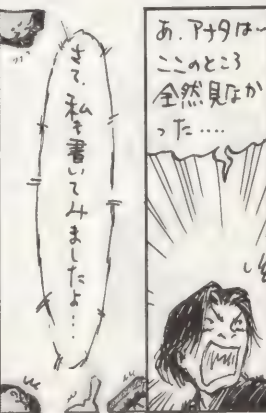 あ、アナタは〜
ここのところ
全然見なか
った……
さて、私も書いてみましたよ…